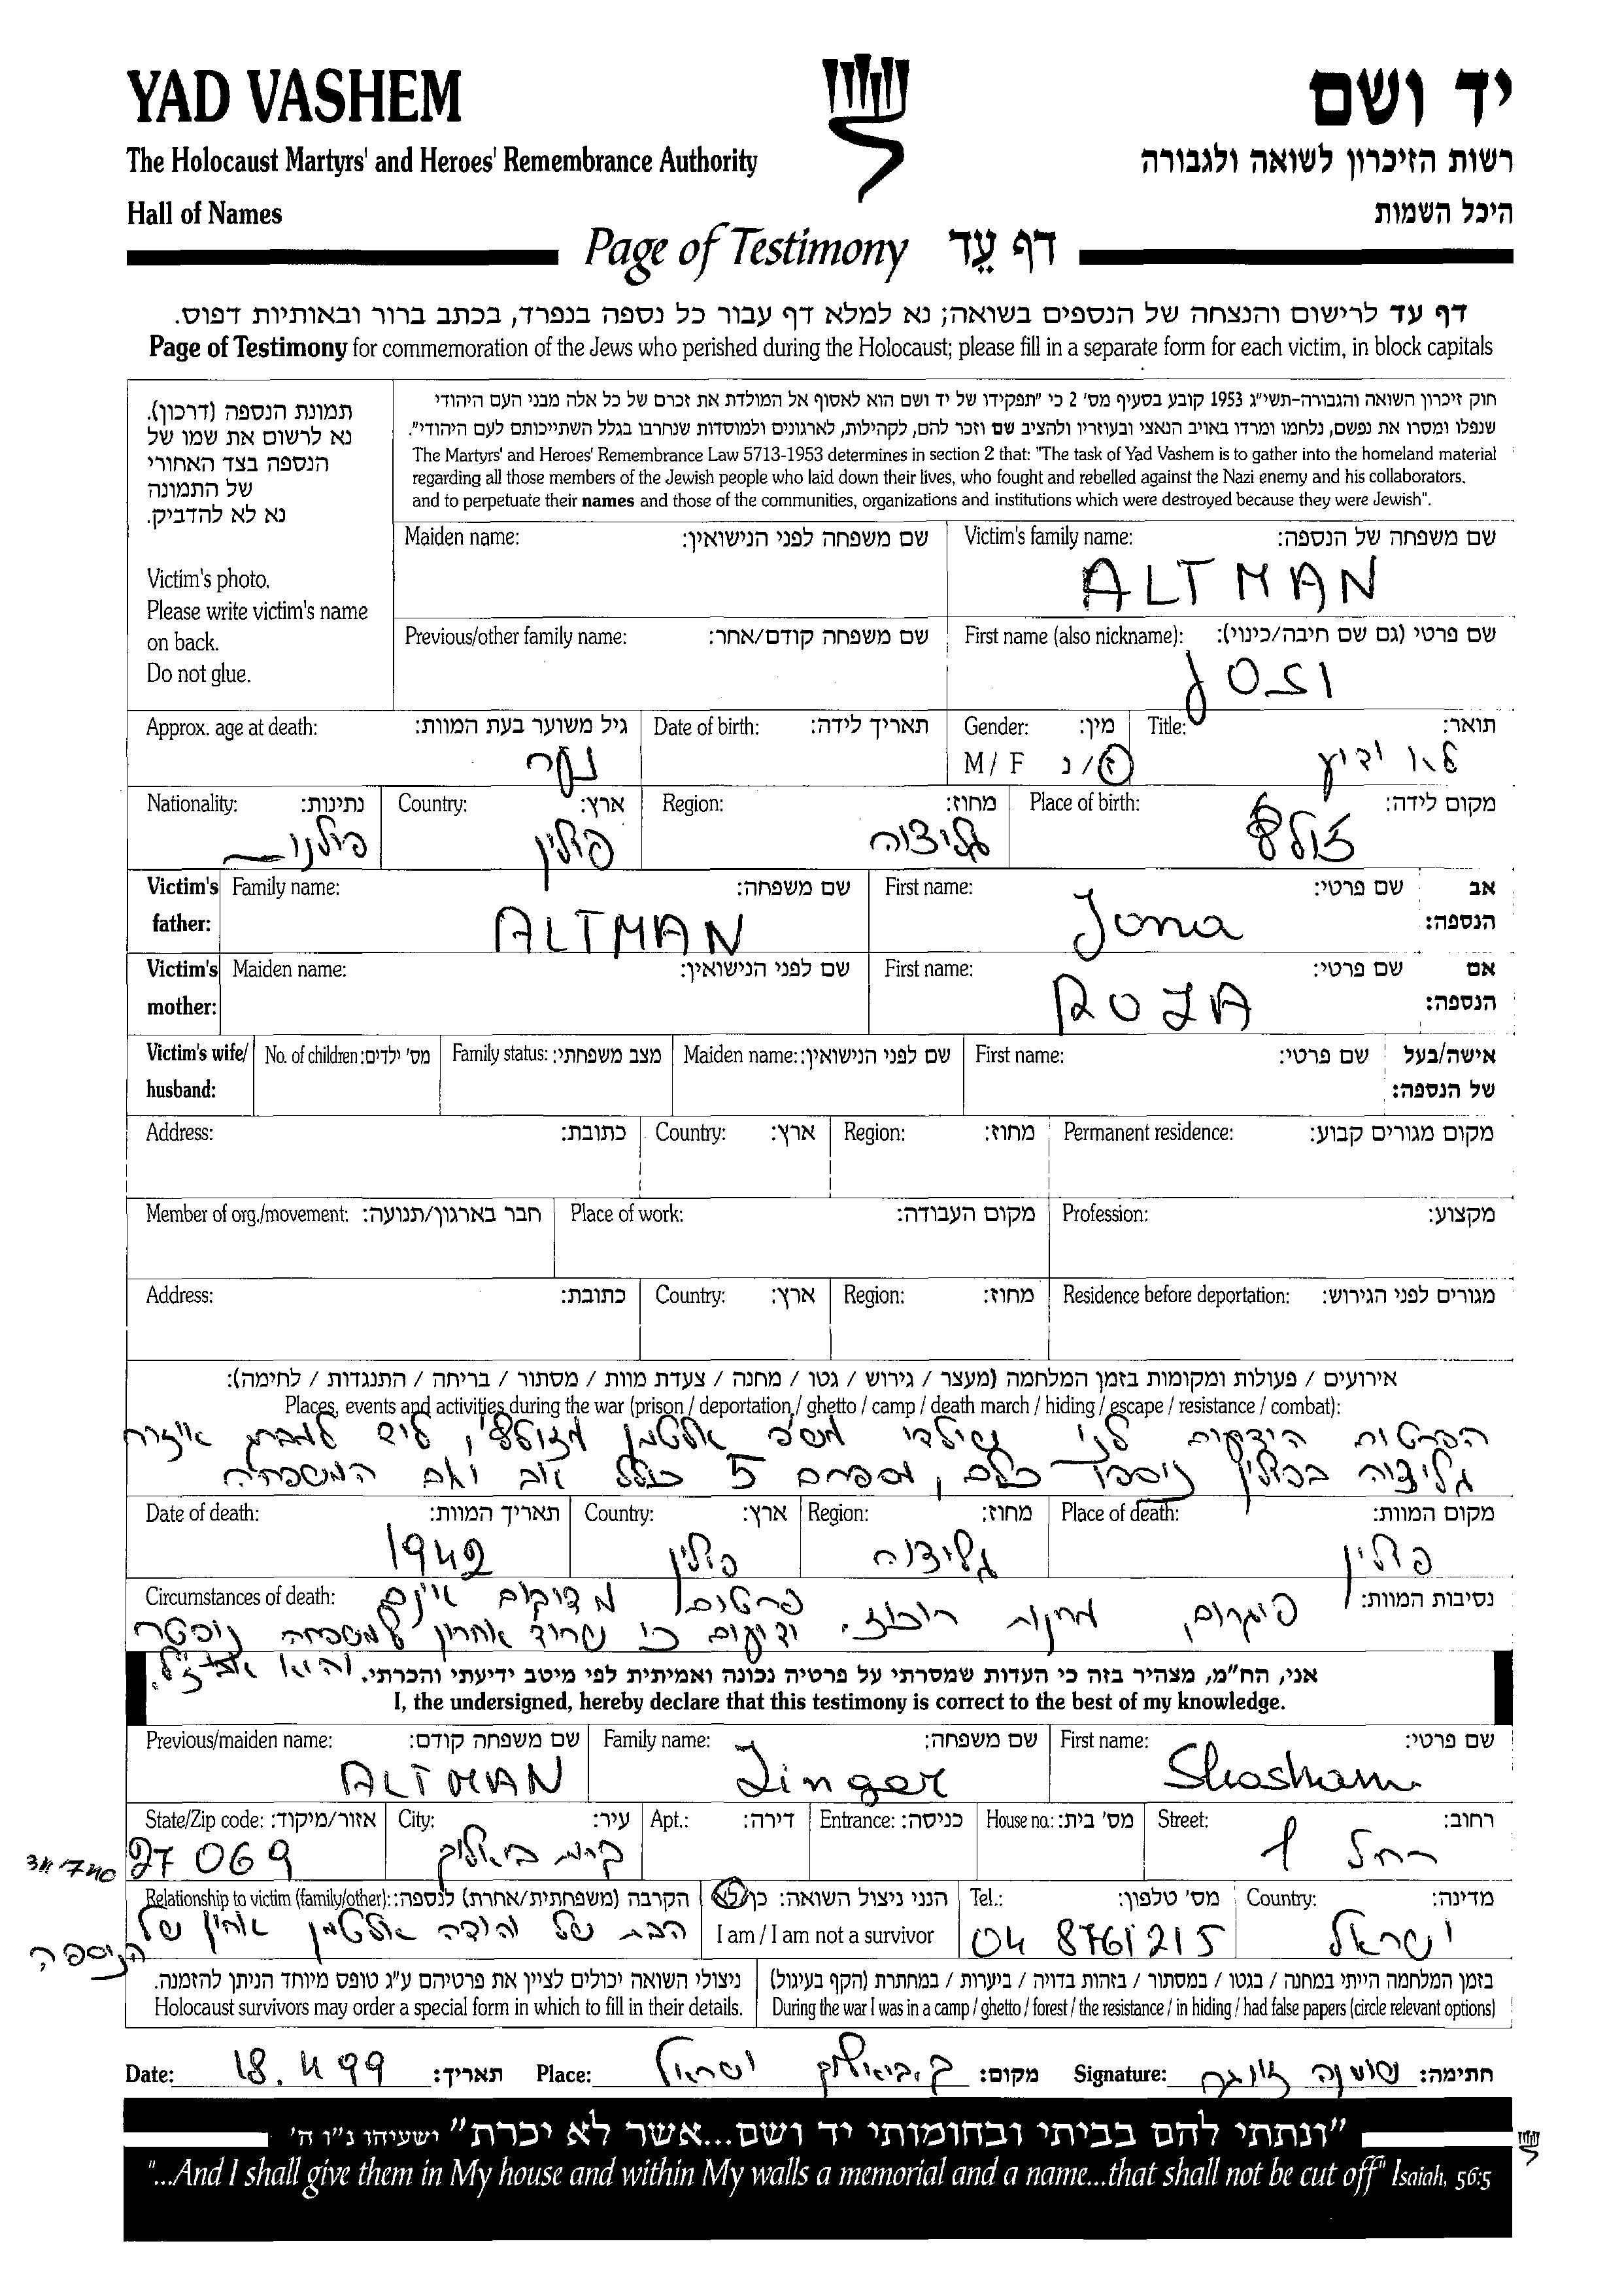 YAD VASHEM
יד ושם
The Holocaust Martyrs' and Heroes' Remembrance Authority
רשות הזיכרון לשואה ולגבורה
Hall of Names
היכל השמות
Page of Testimony דף עֵד
דף עד לרישום והנצחה של הנספים בשואה; נא למלא דף עבור כל נספה בנפרד, בכתב ברור ובאותיות דפוס.
Page of Testimony for commemoration of the Jews who perished during the Holocaust; please fill in a separate form for each victim, in block capitals
תמונת הנספה (דרכון).
נא לרשום את שמו של
הנספה בצד האחורי
של התמונה
נא לא להדביק.
Victim's photo.
Please write victim's name
on back.
Do not glue.
חוק זיכרון השואה והגבורה-תשי"ג 1953 קובע בסעיף מס' 2 כי "תפקידו של יד ושם הוא לאסוף אל המולדת את זכרם של כל אלה מבני העם היהודי
שנפלו ומסרו את נפשם, נלחמו ומרדו באויב הנאצי ובעוזריו ולהציב שם וזכר להם, לקהילות, לארגונים ולמוסדות שנחרבו בגלל השתייכותם לעם היהודי".
The Martyrs' and Heroes' Remembrance Law 5713-1953 determines in section 2 that: "The task of Yad Vashem is to gather into the homeland material
regarding all those members of the Jewish people who laid down their lives, who fought and rebelled against the Nazi enemy and his collaborators,
and to perpetuate their names and those of the communities, organizations and institutions which were destroyed because they were Jewish".
Maiden name: שם משפחה לפני הנישואין: Victim's family name: שם משפחה של הנספה:
ALTMAN
Previous/other family name: שם משפחה קודם/אחר: First name (also nickname): שם פרטי (גם שם חיבה/כינוי):
JOZI
Approx. age at death: גיל משוער בעת המוות: Date of birth: תאריך לידה: Gender: מין: Title: תואר:
נער M / F ז/נ לא ידוע
Nationality: נתינות: Country: ארץ: Region: מחוז: Place of birth: מקום לידה:
פולני פולין גליציה
Victim's father: Family name: שם משפחה: First name: שם פרטי: אב הנספה:
ALTMAN Jona
Victim's mother: Maiden name: שם לפני הנישואין: First name: שם פרטי: אם הנספה:
ROZA
Victim's wife/ husband: No. of children: מס' ילדים: Family status: מצב משפחתי: Maiden name: שם לפני הנישואין: First name: שם פרטי: אישה/בעל של הנספה:
Address: כתובת: Country: ארץ: Region: מחוז: Permanent residence: מקום מגורים קבוע:
Member of org./movement: חבר בארגון/תנועה: Place of work: מקום העבודה: Profession: מקצוע:
Address: כתובת: Country: ארץ: Region: מחוז: Residence before deportation: מגורים לפני הגירוש:
אירועים / פעולות ומקומות בזמן המלחמה (מעצר / גירוש / גטו / מחנה / צעדת מוות / מסתור / בריחה / התנגדות / לחימה):
Places, events and activities during the war (prison / deportation / ghetto / camp / death march / hiding / escape / resistance / combat):
הפרטים הידועים לי שילדי משפ אלטמן
גליציה בפולין נספו כולם, מספרם 5 כולל אב ואם המשפחה
Date of death: תאריך המוות: Country: ארץ: Region: מחוז: Place of death: מקום המוות:
1942 פולין גליציה פולין
Circumstances of death: נסיבות המוות:
פוגרום, מחנות ריכוז. פרטים מדויקים אינם
ידועים כי שריד אחרון למשפחה נפטר
והוא אבי ז"ל.
אני, הח"מ, מצהיר בזה כי העדות שמסרתי על פרטיה נכונה ואמיתית לפי מיטב ידיעתי והכרתי.
I, the undersigned, hereby declare that this testimony is correct to the best of my knowledge.
Previous/maiden name: שם משפחה קודם: Family name: שם משפחה: First name: שם פרטי:
ALTMAN Zinger Shoshana
State/Zip code: אזור/מיקוד: City: עיר: Apt.: דירה: Entrance: כניסה: House no.: מס' בית: Street: רחוב:
27069 קרית ביאליק רחל 1
Relationship to victim (family/other): הקרבה (משפחתית/אחרת) לנספה: הנני ניצול השואה: כן/לא Tel.: מס' טלפון: Country: מדינה:
I am / I am not a survivor
הבת של יהודה אלטמן אחיו של
הנספה
04 8761215 ישראל
ניצולי השואה יכולים לציין את פרטיהם ע"ג טופס מיוחד הניתן להזמנה. בזמן המלחמה הייתי במחנה / בגטו / במסתור / בזהות בדויה / ביערות / במחתרת (הקף בעיגול)
Holocaust survivors may order a special form in which to fill in their details. During the war I was in a camp / ghetto / forest / the resistance / in hiding / had false papers (circle relevant options)
Date: 18.4.99 תאריך: Place: ק.ביאליק ישראל מקום: Signature: שושנה זינגר חתימה:
"ונתתי להם בביתי ובחומותי יד ושם...אשר לא יכרת" ישעיהו נ"ו ה'
"...And I shall give them in My house and within My walls a memorial and a name...that shall not be cut off" Isaiah, 56:5